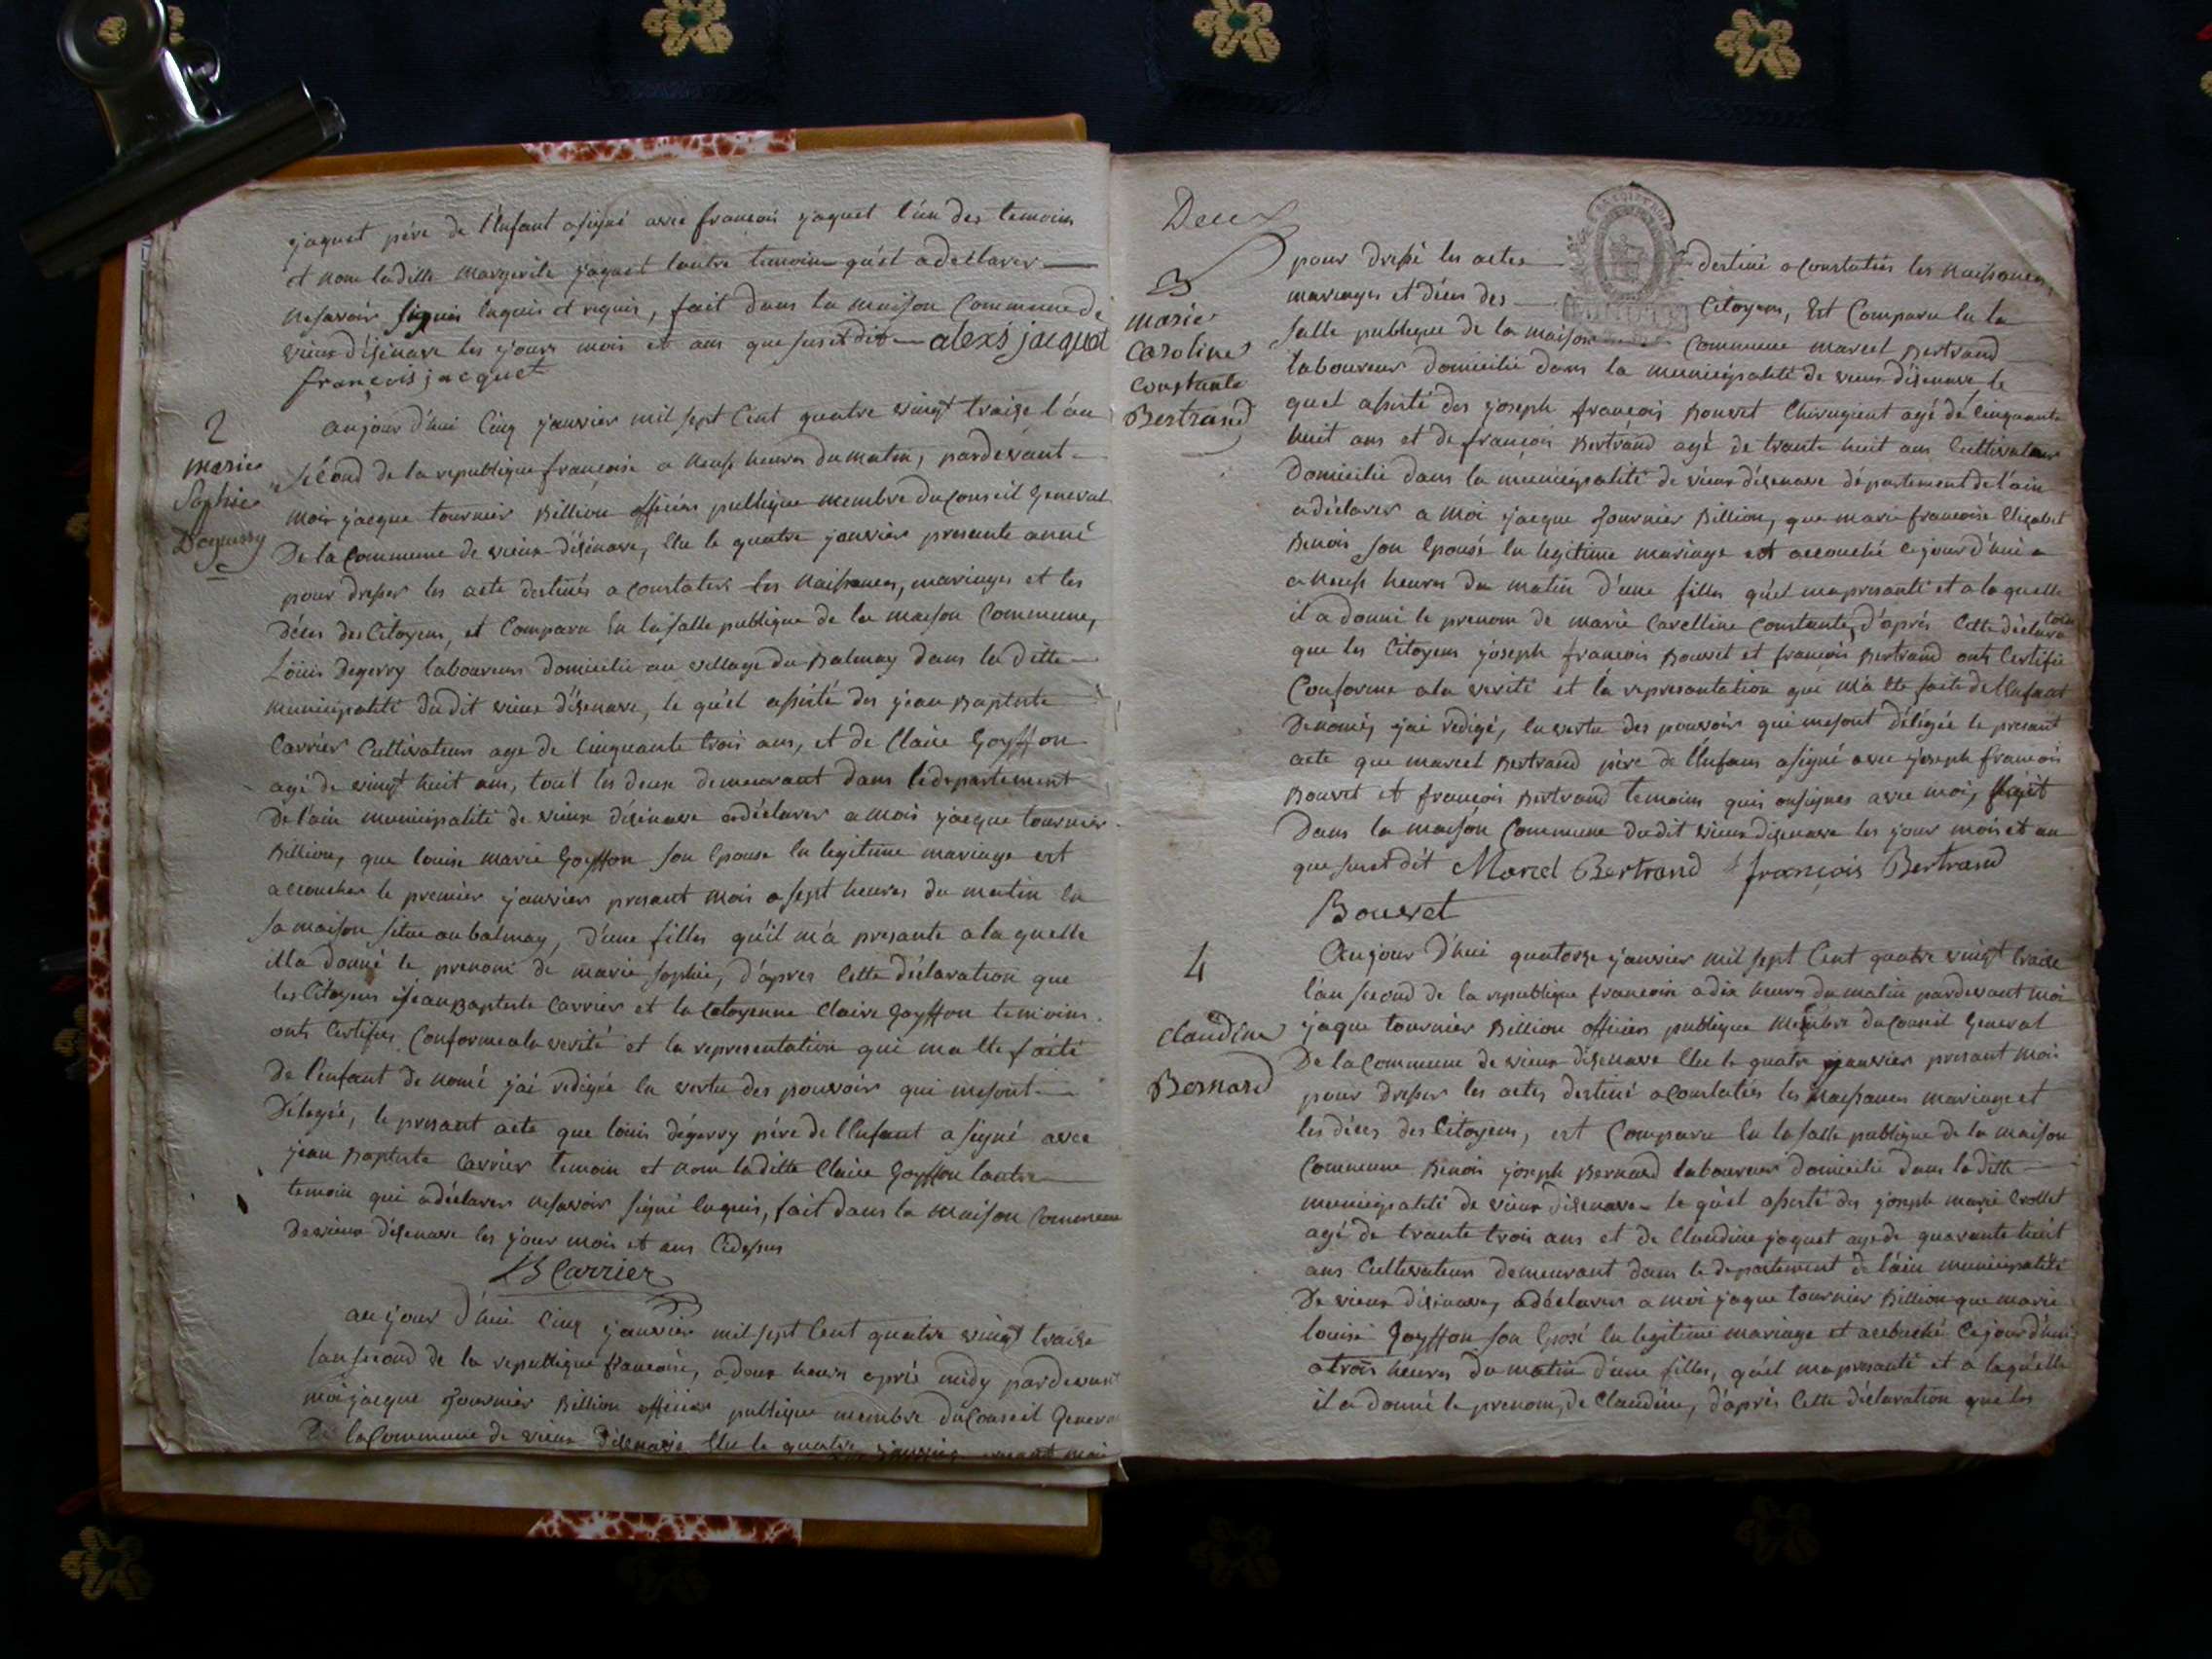 jaquet pére de l'Enfant a signé avec francois jaquet l'un des temoins
et nom la ditte margerite jaquet lautre temoin qu'ét a déclarer
ne savoir signier enquis et requis, fait dans la maison Commune de
vieux d'isenave les jours mois et ans que susit dit alexs jacquet
françois jacquet
2
marie
Sophie
aujourd'hui Cinq janvier mil sept Cent quatre vingt traize l'an
sécond de la republique françoise a neuf heures du matin, pardevant
moi jacque tournier Billion officier publique membre du Conseil General
De la Commune de vieux d'isenave, Elu le quatre janvier presente anné
pour dresser les acte destinés a Constaters les naissances, mariages et les
déces des Citoyens, et Comparu En la salle publique de la maison Commune,
Loüis Degerry laboureur domicilié au village du Balmay dans la ditte
municipalité du dit vieux d'isenave, le qu'él assisté des jean Baptiste
Carrier Cultivateur age de Cinquante trois ans, et de Claire Goyffon
agé de vingt huit ans, tout les deux demeurant dans le departement
De l'ain municipalité de vieux d'isenave a déclarer a moi jacque tournier
Billion, que louise marie Goyffon son Epouse En legitime mariage est
accoucher le premier janvier presant mois a sept heures du matin En
sa maison situe au balmay, d'une filles qu'il m'a presante a la quelle
illa donné le prenom de marie sophie, d'apres Cette déclaration que
les Citoyens jéan Baptiste Carrier et la Citoyenne Claire Goyffon temoins
onts Certifies Conforme a la verité et la representation qui ma Ete faité
De l'enfant de nomé j'ai redigée En vertu des pouvoir qui mesont
Délegée, le presant acte que loüis dégerry pére de l'Enfant a signé avec
jean Baptiste Carrier temoin et nom la ditte Claire Goyffon lautre
temoin qui a déclarer ne savoir signé Enquis, fait dans la maison Commune
De vieux d'isenave les jour mois et ans Cidessus
JB Carrier
aujour d'hui Cinq janvier mil sept Cent quatre vingt traize
lan second de la republique francoise, a deux heures aprés midy pardevant
moi jacque Tournier Billion officier publique membre du Conseil General
De la Commune de vieux d'isenave Elu le quatre janvier presant mois
Deux
3
marie
Caroline
Constante
Bertrand
pour dressé les actes destiné a Constatées les naissances,
mariages et déces des Citoyens, Est Comparu En la
salle publique de la maison Commune marcel Bertrand
laboureur domicilié dans la municipalité de vieux d'isenave le
quel assisté des joseph françois Bouvet Chirugient agé de Cinquante
huit ans et de françois Bertrand agé de trante huit ans Cultivateur
Domicilié dans la municipalité de vieux d'isenave département de l'ain
a déclarer a moi jacque Tournier Billion, que marie francoise Elizabet
Benois son Epousé En legitime mariage est accouché cejour d'hui
a neuf heures du matin d'une filles qu'el ma presanté et a la quelle
il a donné le prenom de marie Carelline Constante, d'aprés Cette déclaration
que les Citoyens joseph francois Bouvet et francois Bertrand onts Certifié
Conforme a la verité et la represantation qui m'a Ete faite de l'Enfant
Denomé, j'ai redigé, En vertu des pouvoir qui mesont délégée le presant
acte que marcel Bertrand pére de l'Enfans a signé avec joseph francois
Bouvet et francois Bertrand temoins quis onsignes avec moi, fait
Dans la maison Commune du dit vieux d'isenave les jour mois et an
que suset dit Marcel Bertrand françois Bertrand
Bouvet
4
Claudine
Bernard
Aujour d'hui quatorze janvier mil sept Cent quatre vingt traize
l'an second de la republique francoise a dix heures du matin pardevant moi
jaque tournier Billion officier publique membre du Conseil General
De la Commune de vieux d'isenave Elu le quatre janvier presant mois
pour dresser les actes destiné a Constatées les naissances mariage et
les déces des Citoyens, est Comparu En la salle publique de la maison
Commune Benois joseph Bernard laboureur domicilié dans la ditte
municipalité de vieux d'isenave le qu'el assisté des joseph marie Crollet
agé de trante trois ans et de Claudine jaquet age de quarante huit
ans Cultivateurs demeurant dans le departement de l'ain municipalité
De vieux d'isenave, a déclarer a moi jaque tournier Billion que marie
louise Goyffon son Eposé En legitime mariage et accouché Cejour d'hui
a trois heures du matin d'une filles, qu'el ma presanté et a laquelle
il a donné le prenom, de Claudine, d'aprés Cette déclaration que les